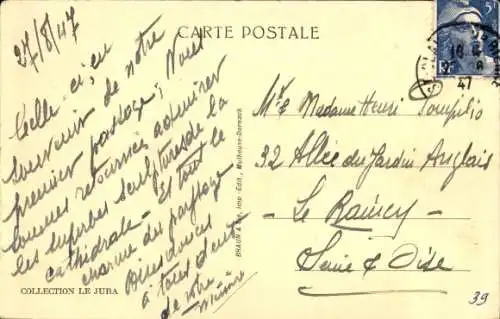 CARTE POSTALE
27/8/47
Celle ci, en
souvenir de notre
premier passage; Nous
sommes retournés admirer
les superbes sculptures de la
cathédrale - Et tout le
charme du paysage
Bien douces
à tous deux
de votre
COLLECTION LE JURA
BRAUN & Cie Imp. Edit., Mulhouse-Dornach
Mr & Madame Henri Pompilio
32 Allée du Jardin Anglais
Le Raincy
Seine & Oise
47
39